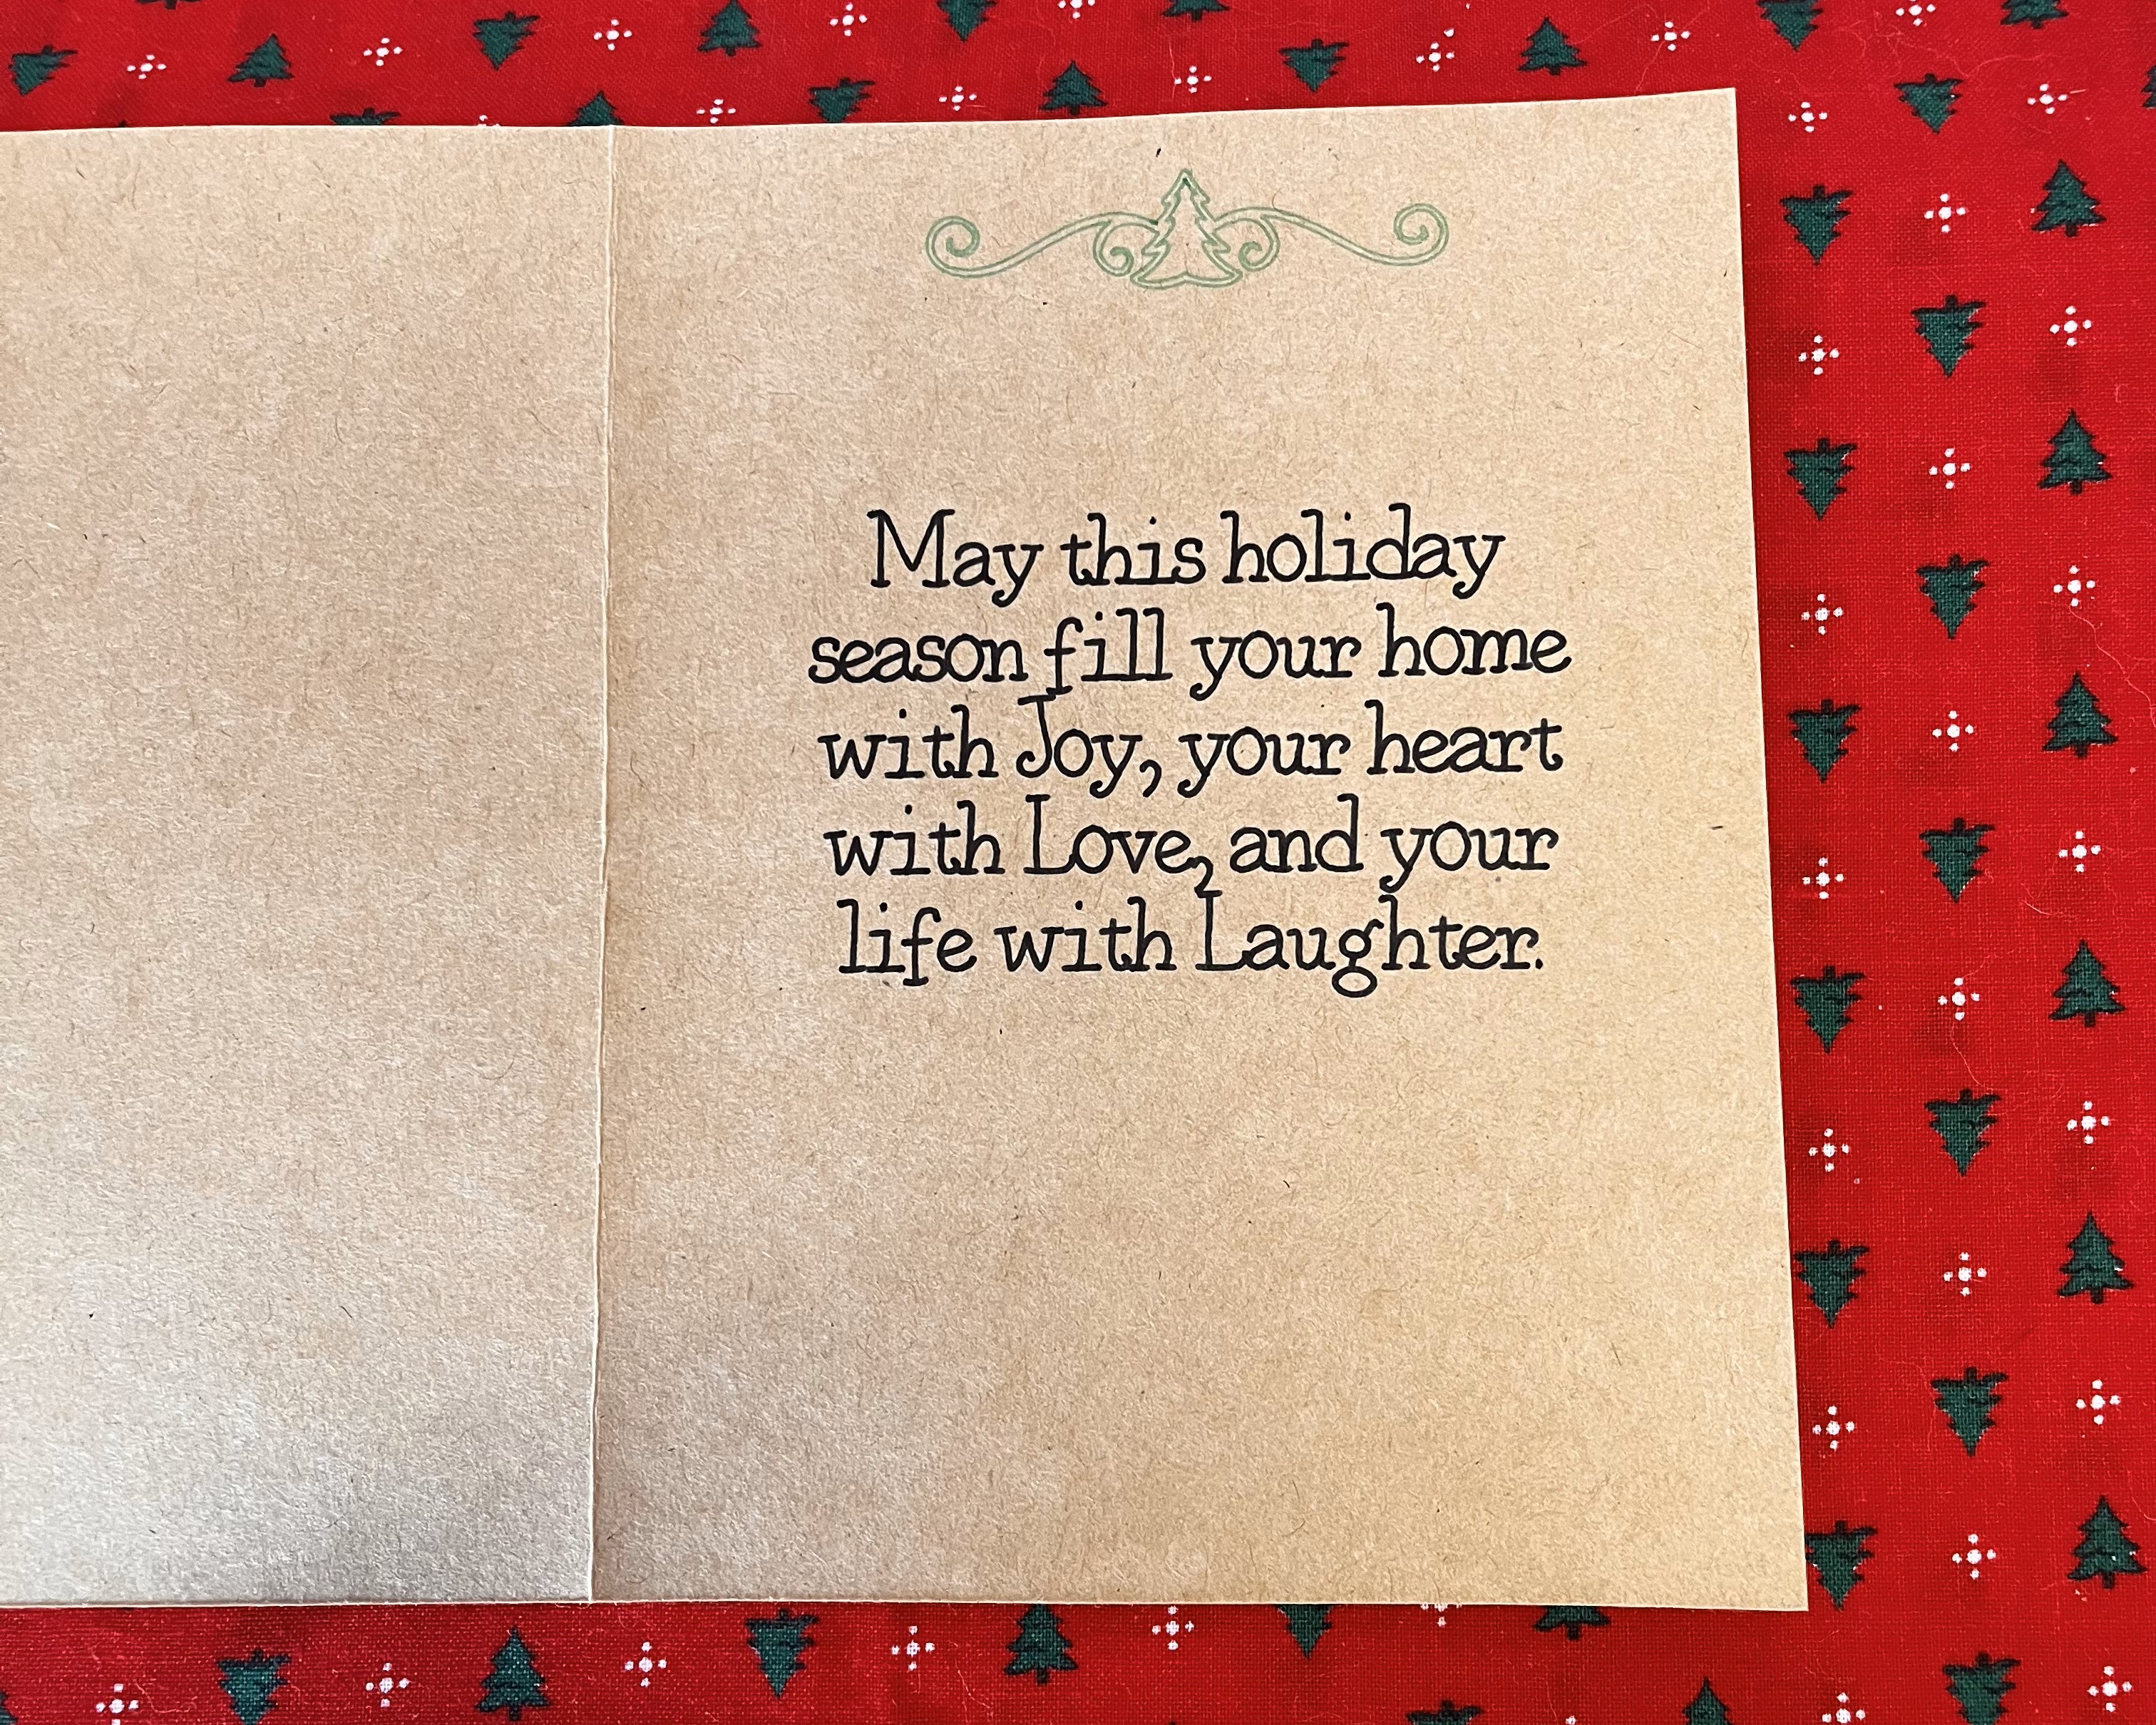 May this holiday
season fill your home
with Joy, your heart
with Love, and your
life with Laughter.